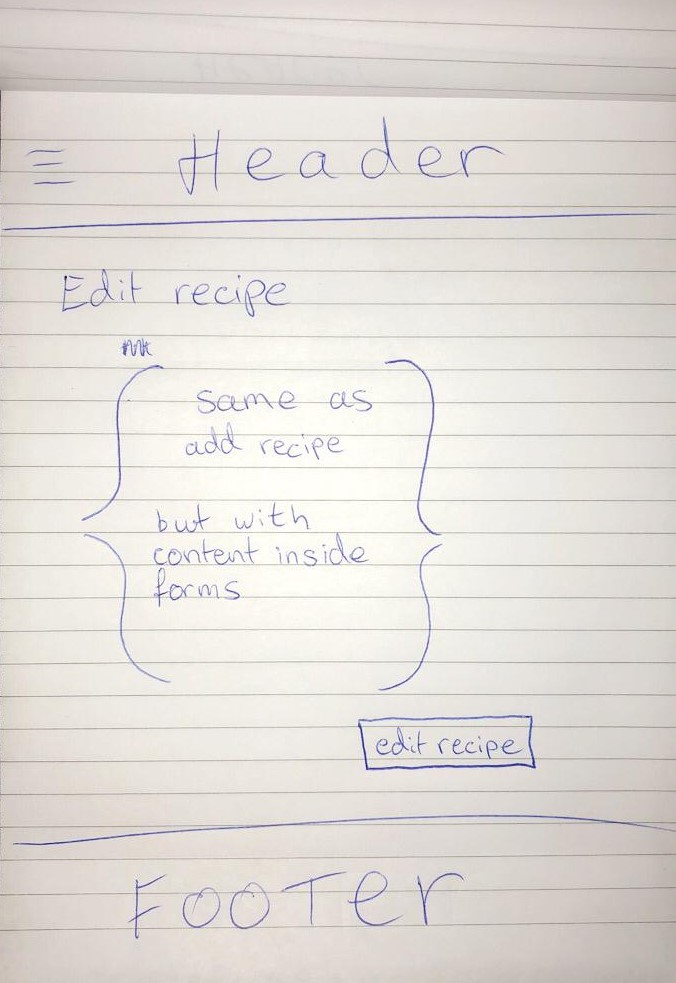 Header
Edit recipe
same as
add recipe
but with
content inside
forms
edit recipe
FOOTer